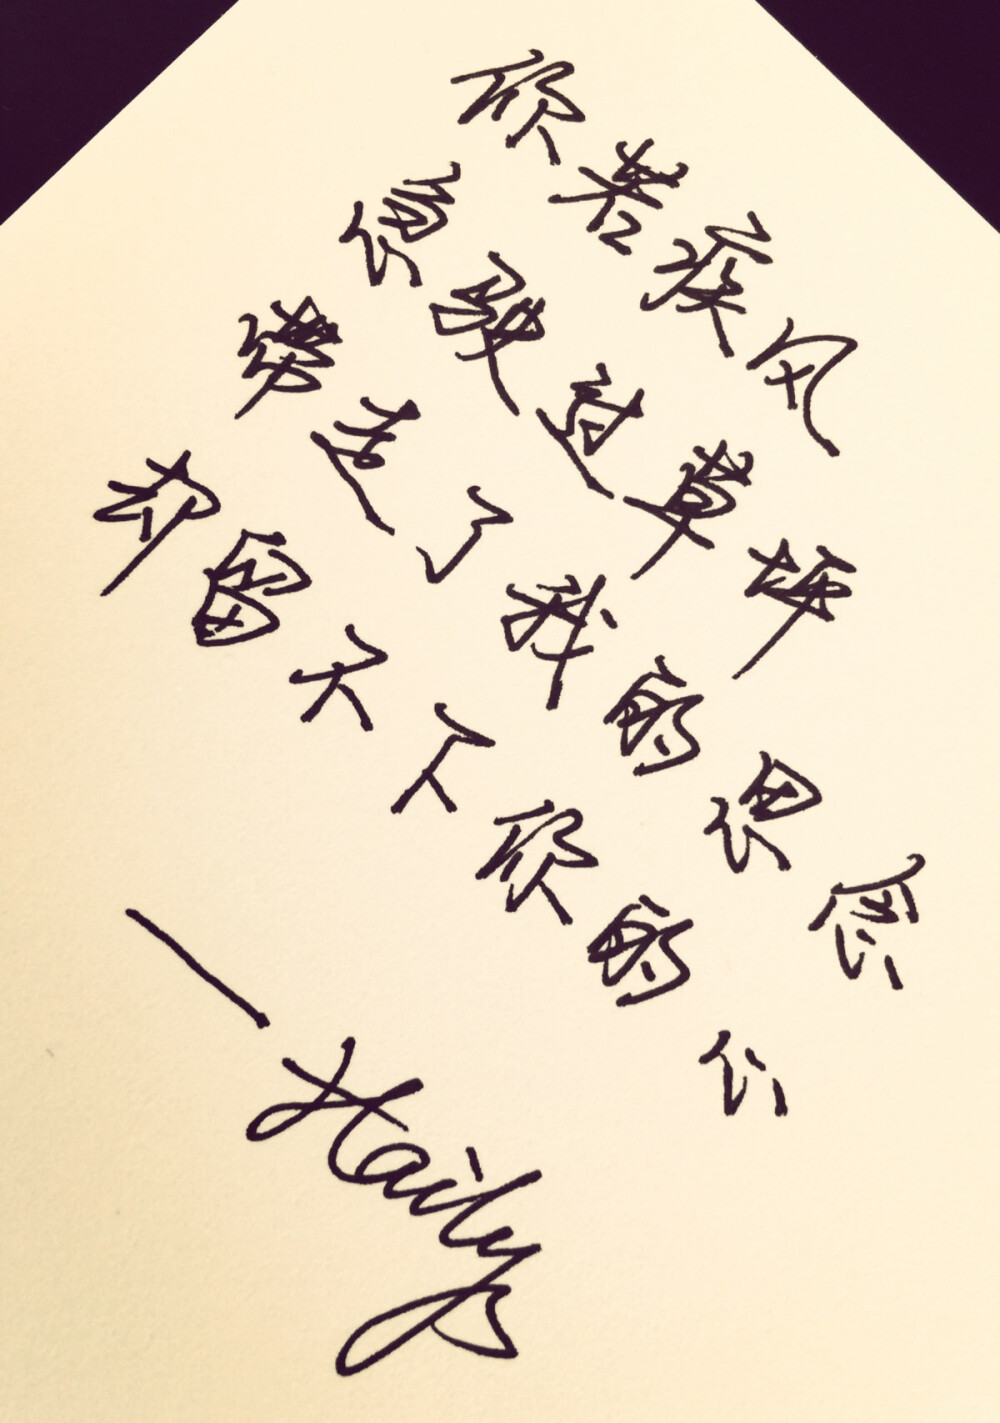 你若疾风
急驶过草坪
带走了我的思念
却留不下你的心
—Haily